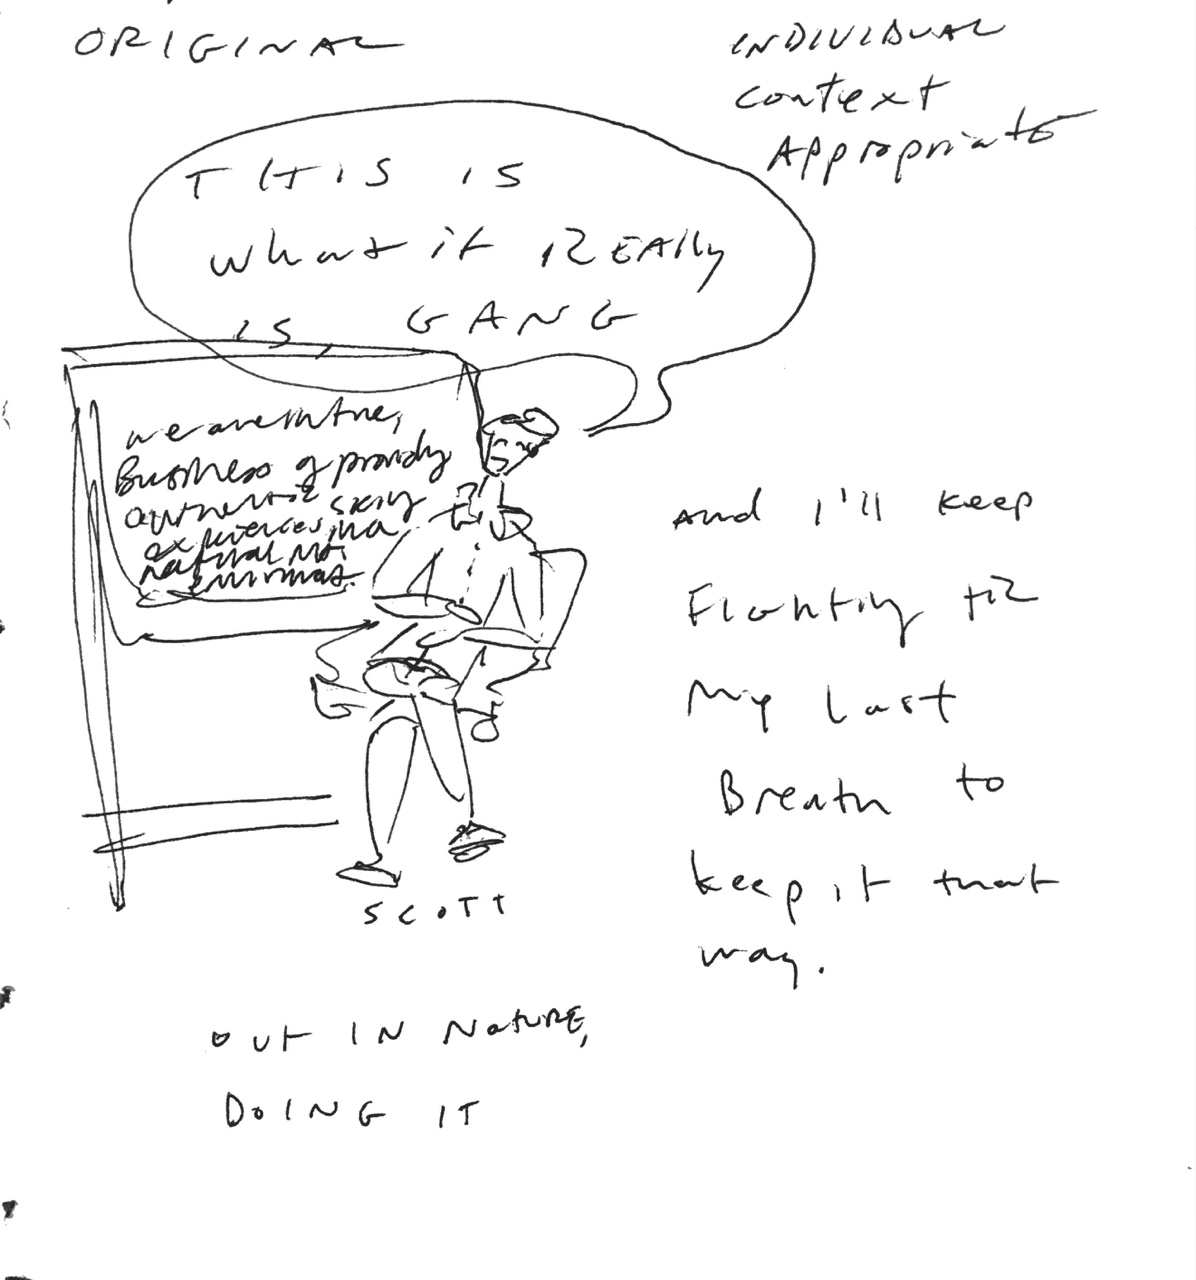 ORIGINAL
INDIVIDUAL
context
Appropriate
THIS IS
what it REAlly
is, GANG
we are in the,
Business of
authentic skiing
experiences in a
natural mt.
And I'll keep
Fighting til
My last
Breath to
keep it that
way.
SCOTT
OUT IN NATURE,
DOING IT